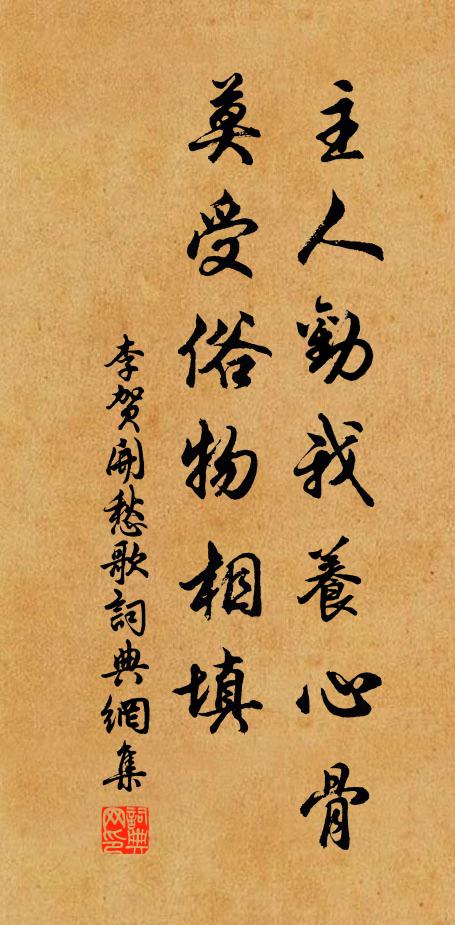 主人勸我養心骨
莫受俗物相填
李賀開愁歌詞典網集
詞典网印